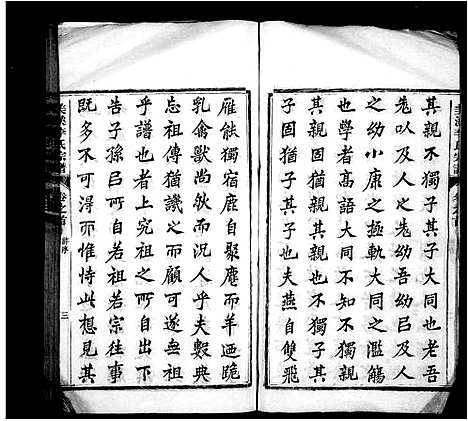 其親不獨子其子大同也老吾
老㠯及人之老幼吾幼㠯及人
之幼小康之極軌大同之濫觴
也學者高語大同不獨親
其親固獨親其親也不獨子其
子固獨子其子也夫燕自雙飛
雁能獨宿鹿自聚麀而羊迺跪
乳禽獸尚然而況人乎夫數典
忘祖傳猶譏之而顧可遂無祖
乎譜也者上究祖之所自出下
告子孫㠯所自若祖若宗往事
既多不可得而惟恃此想見其
美溪李氏宗譜 卷之首 譜序 三